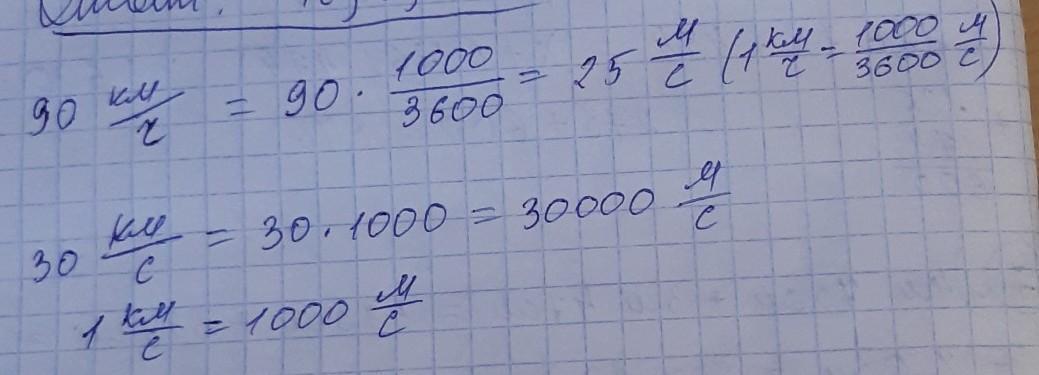 90 км/ч = 90 · 1000/3600 = 25 м/с (1 км/ч = 1000/3600 м/с)
30 км/с = 30 · 1000 = 30000 м/с
1 км/с = 1000 м/с